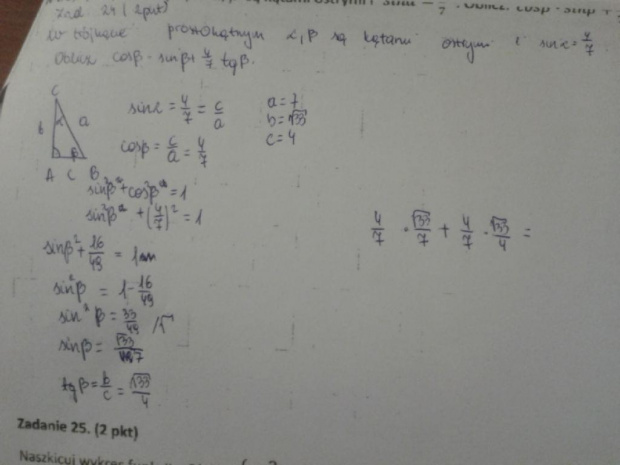 Zad. 24 (2pkt)
W trójkącie prostokątnym α, β są kątami ostrymi i sinα = 4/7.
Oblicz cosβ · sinβ + 4/7 tgβ.
C
b a
α
β
A C B
sinα = 4/7 = c/a
cosβ = c/a = 4/7
a = 7
b = √33
c = 4
sin²β + cos²β = 1
sin²β + (4/7)² = 1
sinβ² + 16/49 = 1
sin²β = 1 - 16/49
sin²β = 33/49 /√
sinβ = √33/7
tgβ = b/c = √33/4
4/7 · √33/7 + 4/7 · √33/4 =
Zadanie 25. (2 pkt)
Naszkicuj wykres